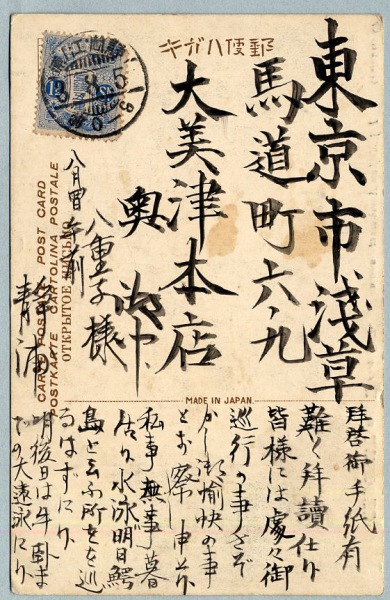 郵便ハガキ
東京市浅草
馬道町六ノ九
大美津本店
奥
八重子様
八月四日午前
静浦
CARTE POSTALE POST CARD
POSTKARTE CARTOLINA POSTALE
ОТКРЫТОЕ ПИСЬМО
MADE IN JAPAN.
拝啓御手紙有
難く拝読仕り
皆様には處々御
巡行の事さぞ
かし御愉快の事
とお察し申上
私事無事暮
居り水泳明日
島と云ふ所をを巡
るはずになり
明後日は牛臥ま
での大遠泳になり